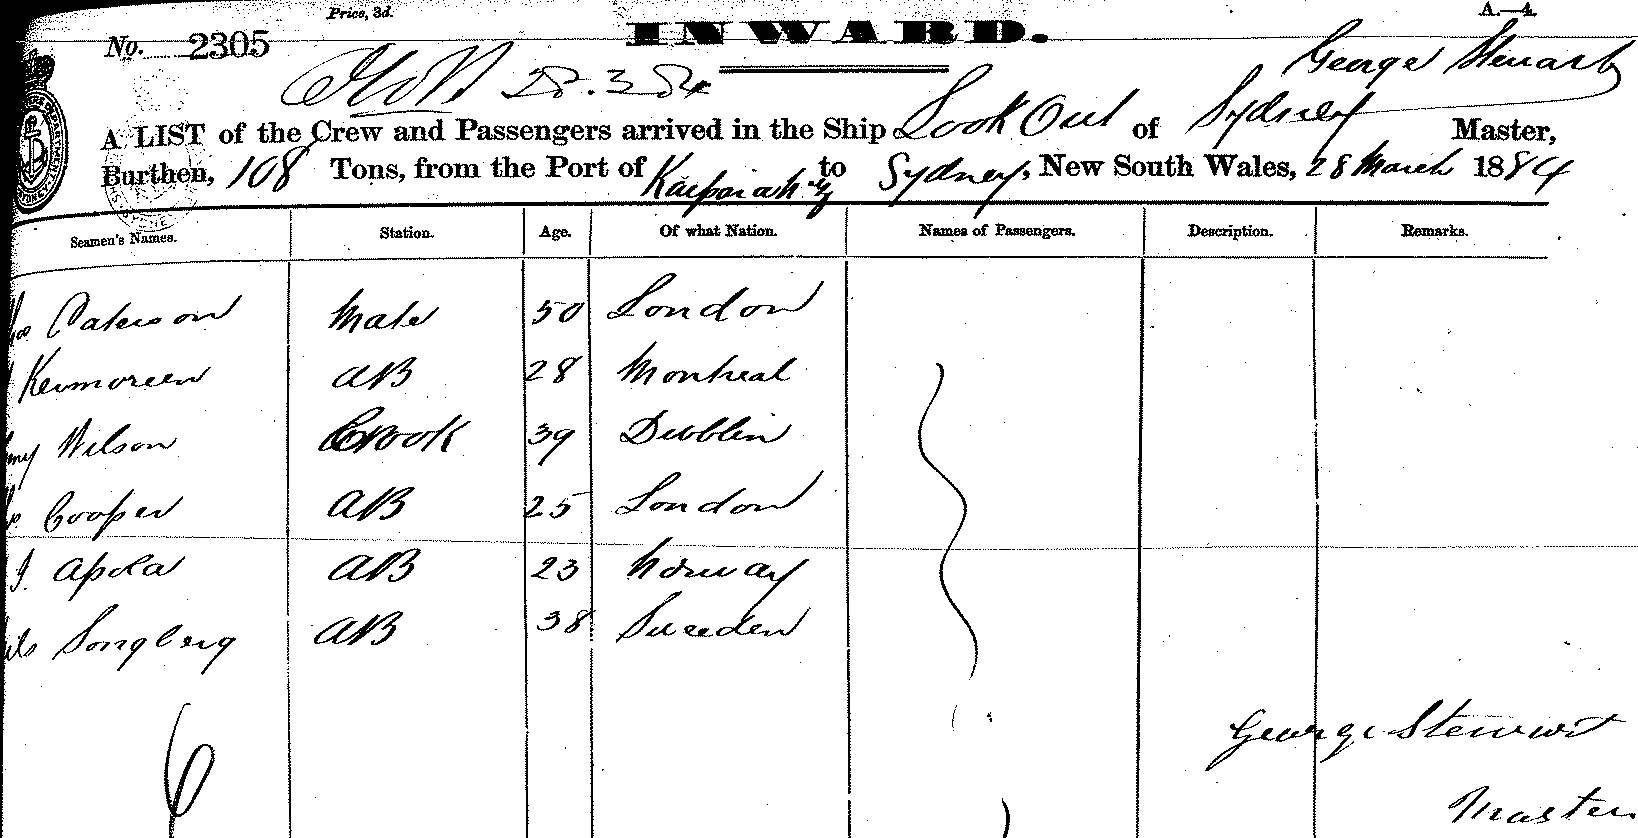 Price, 3d.
A.—4.
INWARD.
No. 2305
George Stewart
28.3.84
A LIST of the Crew and Passengers arrived in the Ship Look Out of Sydney Master,
Burthen, 108 Tons, from the Port of to Sydney, New South Wales, 28 March 1884
Seamen's Names. Station. Age. Of what Nation. Names of Passengers. Description. Remarks.
Paterson Mate 50 London
Kenmoreen AB 28 Montreal
Wilson Cook 39 Dublin
Cooper AB 25 London
J. Apola AB 23 Norway
Songberg AB 38 Sweeden
6
George Stewart
Master